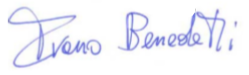 Ivano Benedetti